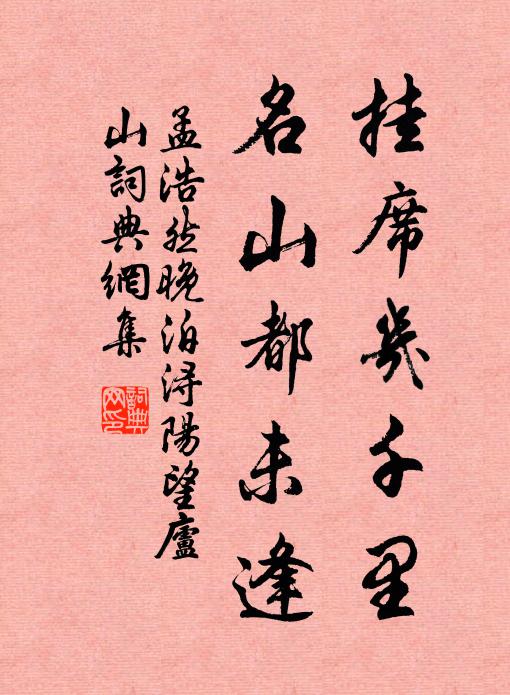 挂席幾千里
名山都未逢
孟浩然晚泊潯陽望廬
山詞典網集
詞典
网印